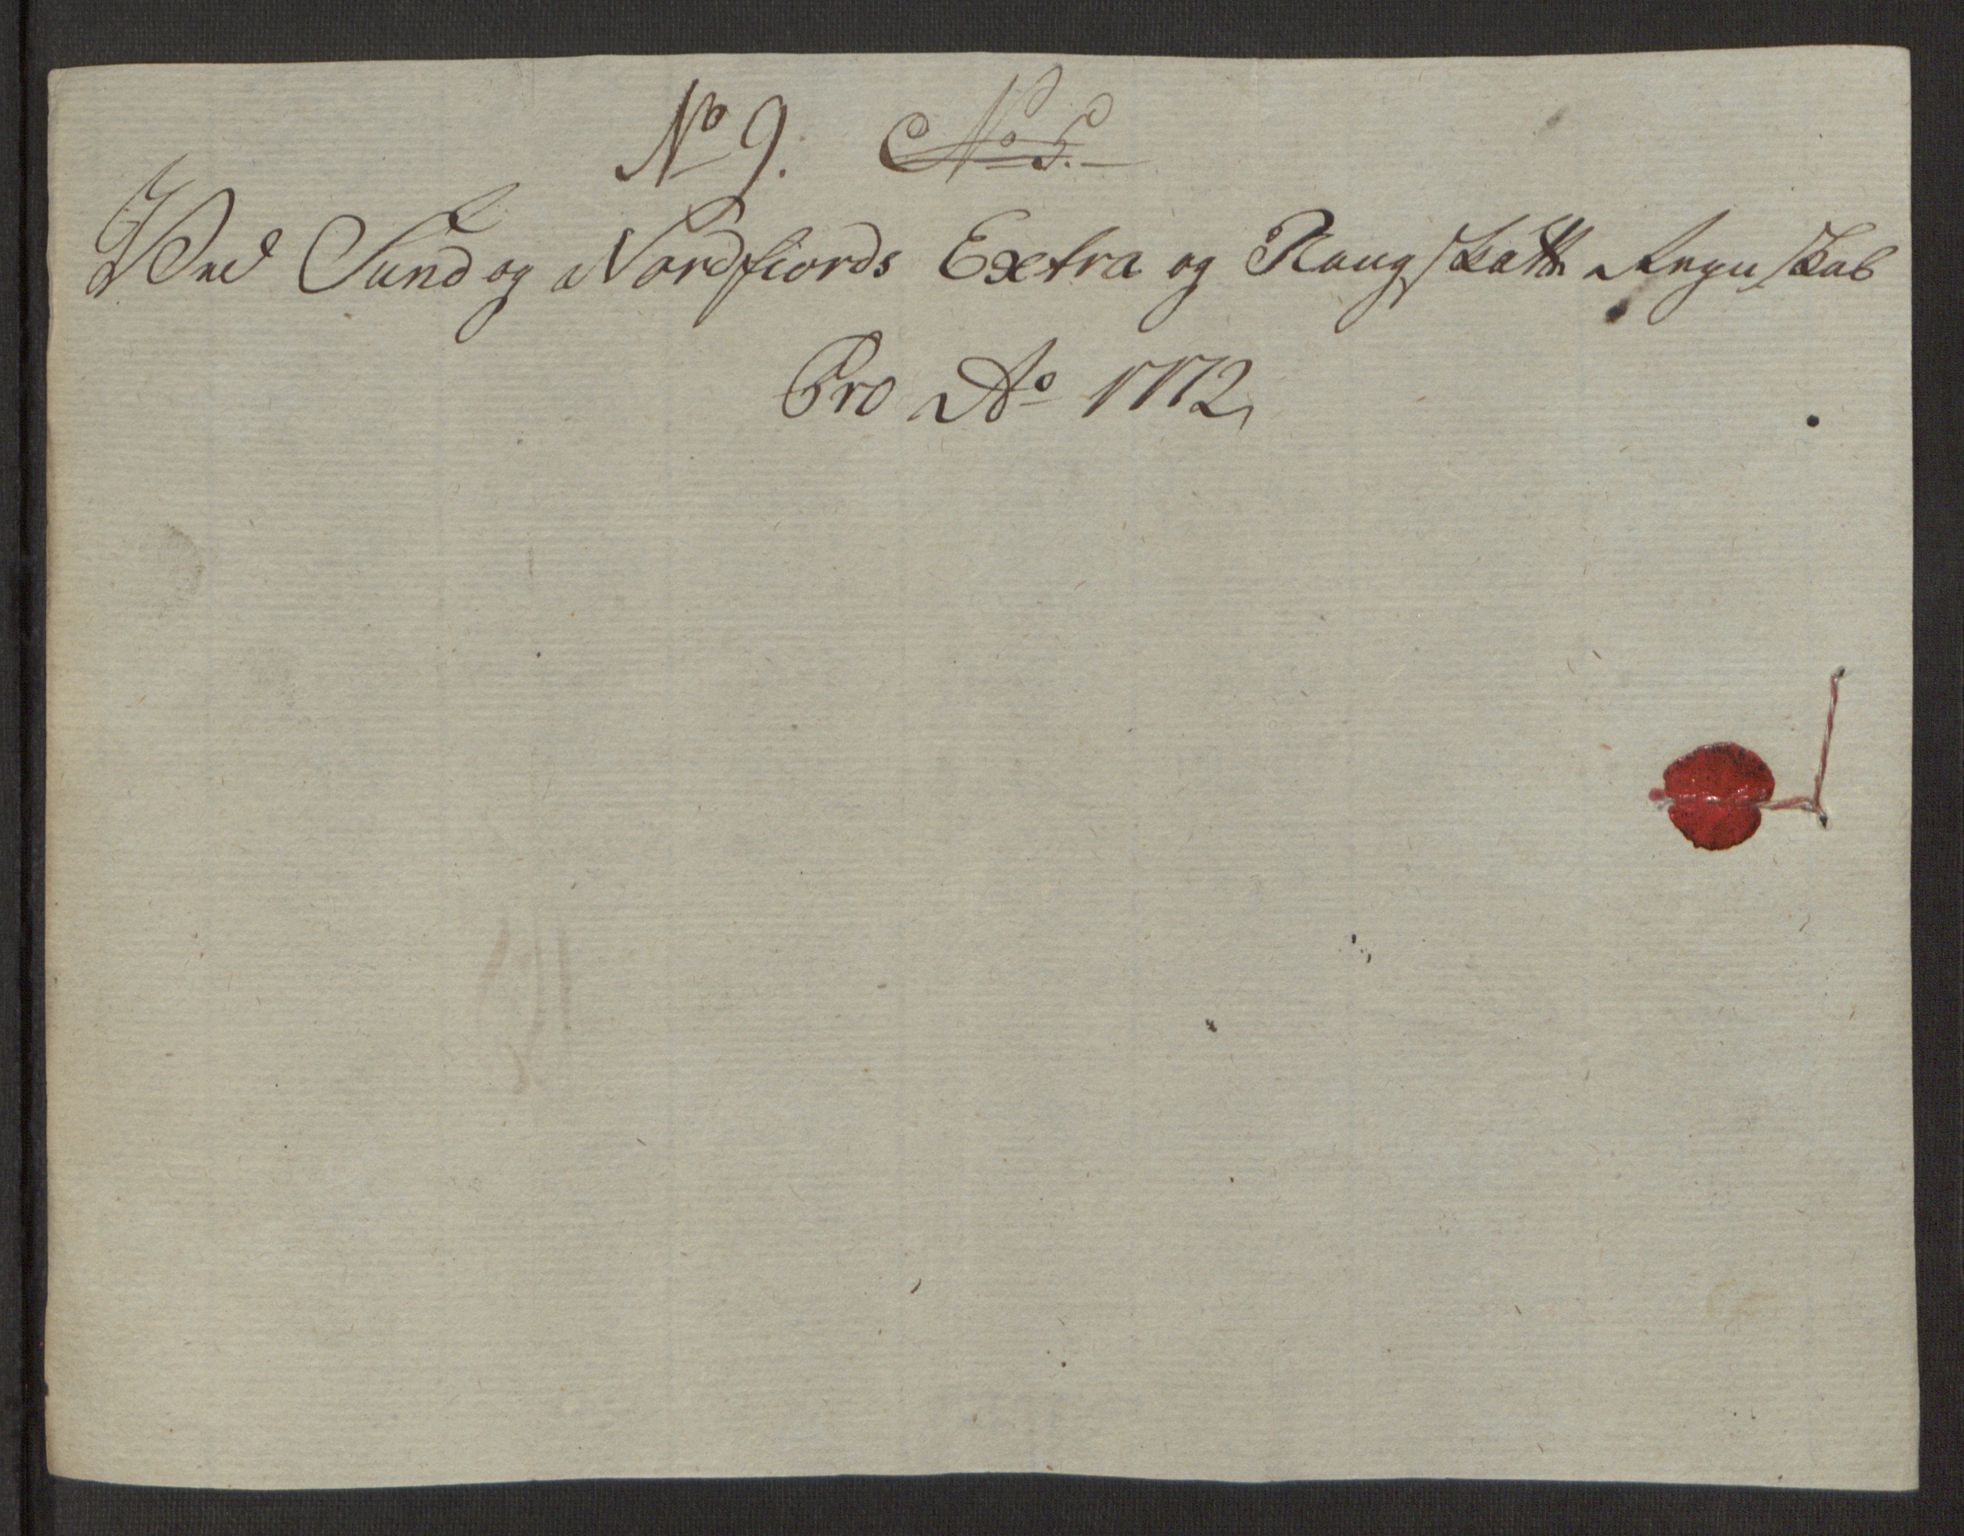 No 9. No 5.
Ved Sund og Nordfiords Extra og Rang Skatte Regnskab
Pro Ao 1772,